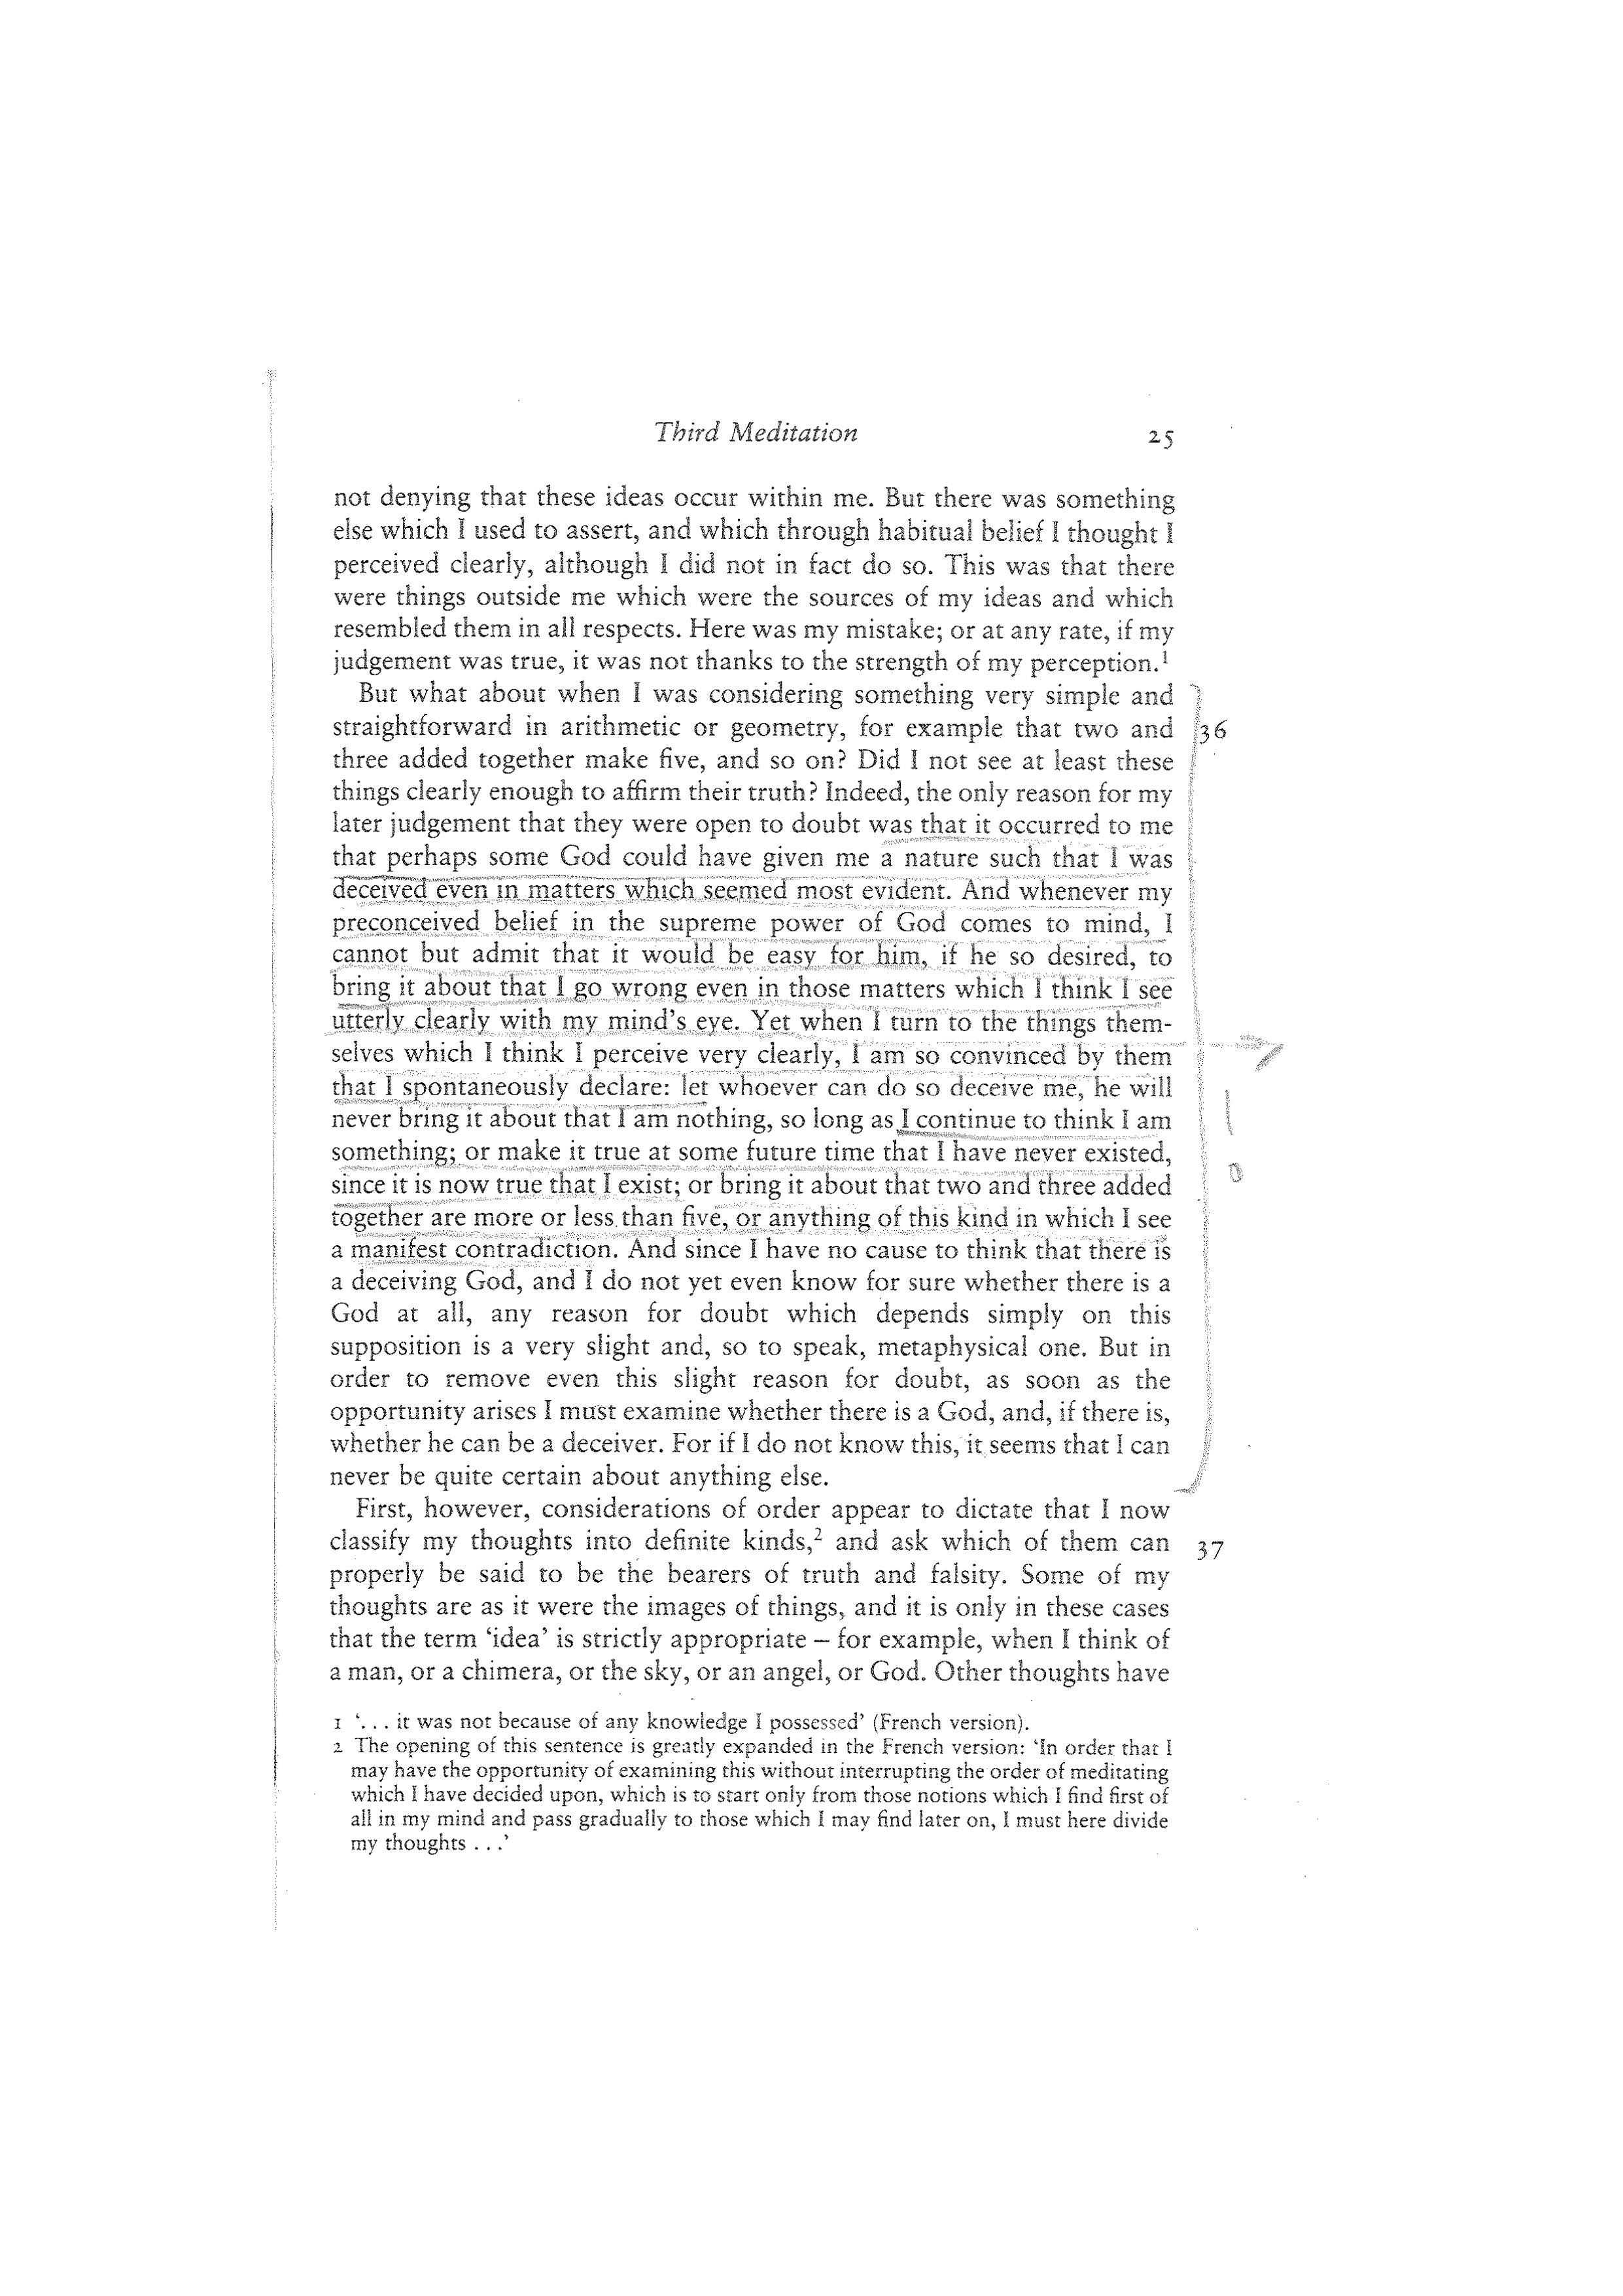 Third Meditation 25
not denying that these ideas occur within me. But there was something
else which I used to assert, and which through habitual belief I thought I
perceived clearly, although I did not in fact do so. This was that there
were things outside me which were the sources of my ideas and which
resembled them in all respects. Here was my mistake; or at any rate, if my
judgement was true, it was not thanks to the strength of my perception.¹
But what about when I was considering something very simple and
straightforward in arithmetic or geometry, for example that two and 36
three added together make five, and so on? Did I not see at least these
things clearly enough to affirm their truth? Indeed, the only reason for my
later judgement that they were open to doubt was that it occurred to me
that perhaps some God could have given me a nature such that I was
deceived even in matters which seemed most evident. And whenever my
preconceived belief in the supreme power of God comes to mind, I
cannot but admit that it would be easy for him, if he so desired, to
bring it about that I go wrong even in those matters which I think I see
utterly clearly with my mind's eye. Yet when I turn to the things them-
selves which I think I perceive very clearly, I am so convinced by them
that I spontaneously declare: let whoever can do so deceive me, he will
never bring it about that I am nothing, so long as I continue to think I am
something; or make it true at some future time that I have never existed,
since it is now true that I exist; or bring it about that two and three added
together are more or less than five, or anything of this kind in which I see
a manifest contradiction. And since I have no cause to think that there is
a deceiving God, and I do not yet even know for sure whether there is a
God at all, any reason for doubt which depends simply on this
supposition is a very slight and, so to speak, metaphysical one. But in
order to remove even this slight reason for doubt, as soon as the
opportunity arises I must examine whether there is a God, and, if there is,
whether he can be a deceiver. For if I do not know this, it seems that I can
never be quite certain about anything else.
First, however, considerations of order appear to dictate that I now
classify my thoughts into definite kinds,² and ask which of them can 37
properly be said to be the bearers of truth and falsity. Some of my
thoughts are as it were the images of things, and it is only in these cases
that the term 'idea' is strictly appropriate – for example, when I think of
a man, or a chimera, or the sky, or an angel, or God. Other thoughts have
1 '. . . it was not because of any knowledge I possessed' (French version).
2 The opening of this sentence is greatly expanded in the French version: 'In order that I
may have the opportunity of examining this without interrupting the order of meditating
which I have decided upon, which is to start only from those notions which I find first of
all in my mind and pass gradually to those which I may find later on, I must here divide
my thoughts . . .'